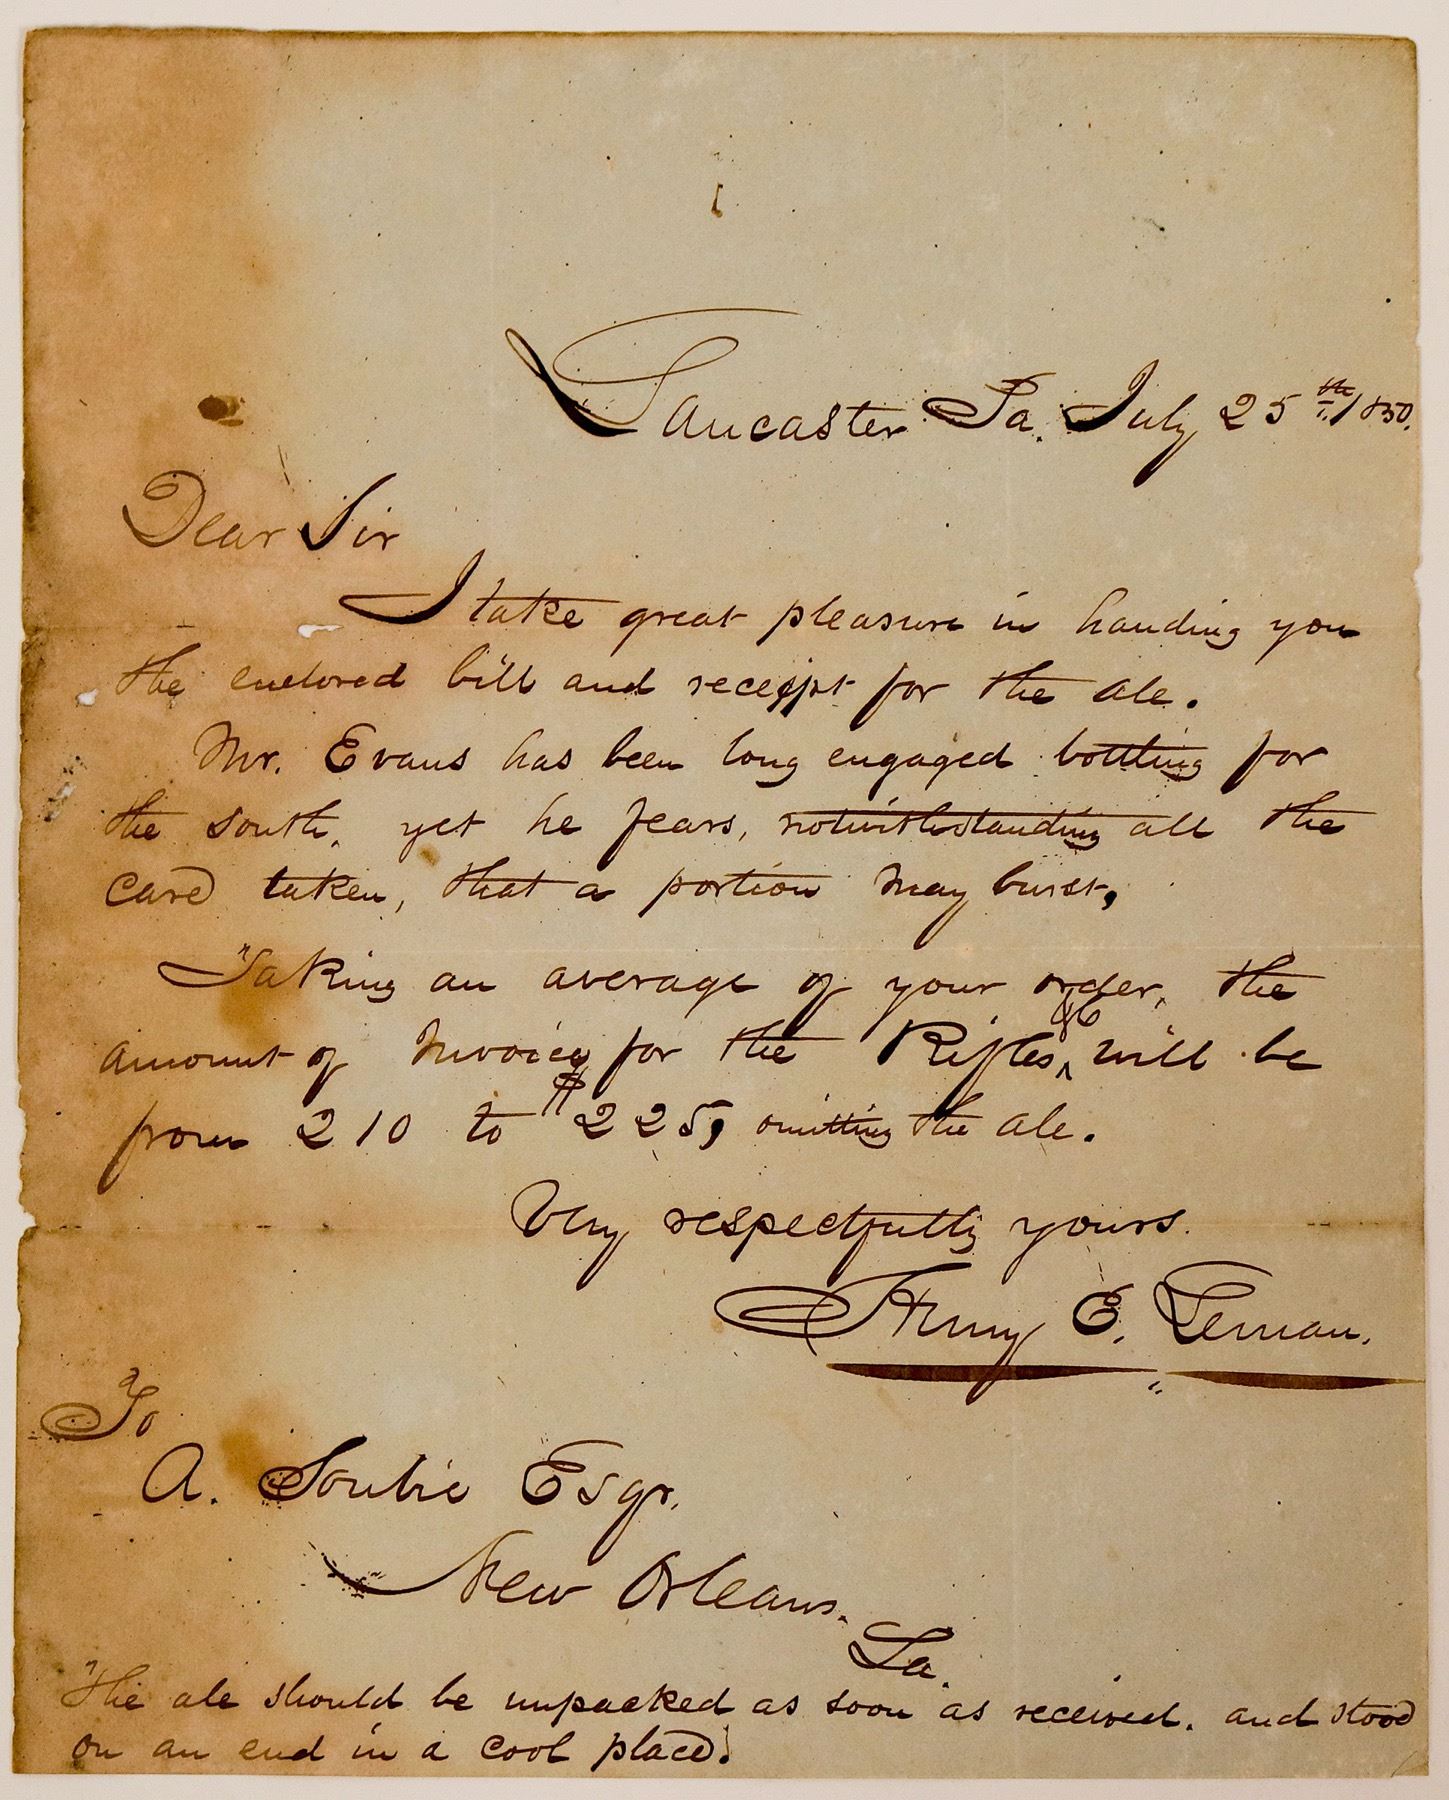 Lancaster Pa. July 25th 1850.
Dear Sir
I take great pleasure in handing you
the enclosed bill and receipt for the ale.
Mr. Evans has been long engaged bottling for
the south, yet he fears, notwithstanding all the
care taken, that a portion may burst,
Taking an average of your order, the
amount of Invoice for the Rifles &c will be
from 210 to $225, omitting the ale.
Very respectfully yours.
Henry E. Leman.
To
A. Soubie Esqr.
New Orleans.
La.
The ale should be unpacked as soon as received. and stood
on an end in a cool place.